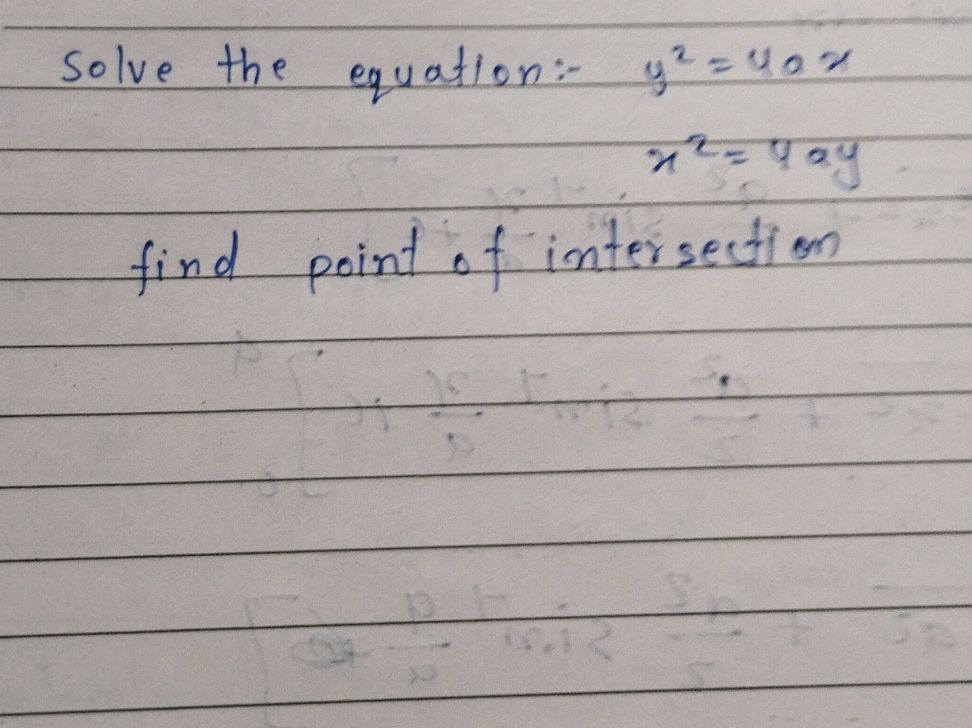 Solve the equation:- y² = 4ax
x² = 4ay
find point of intersection